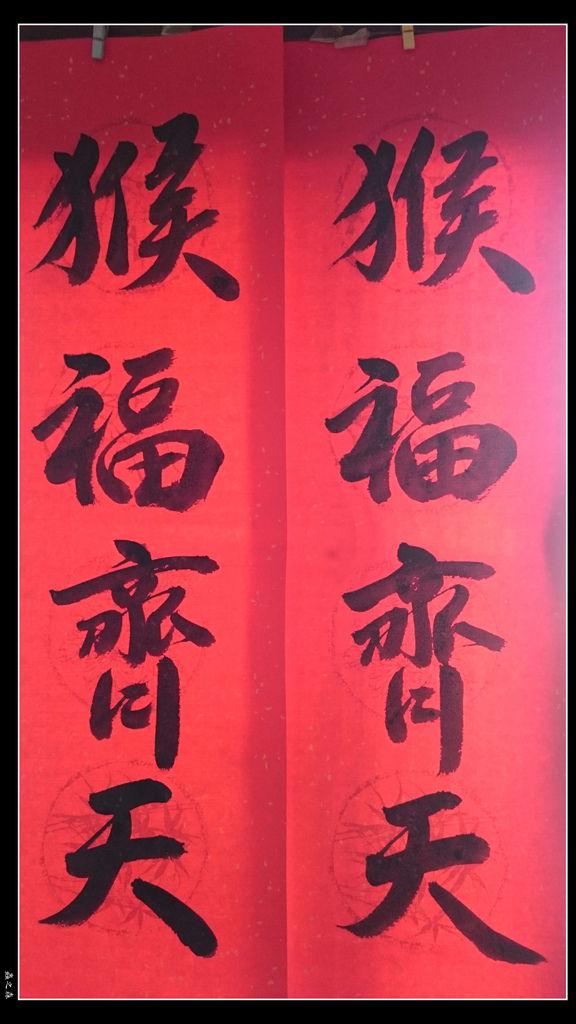 猴福齊天
猴福齊天